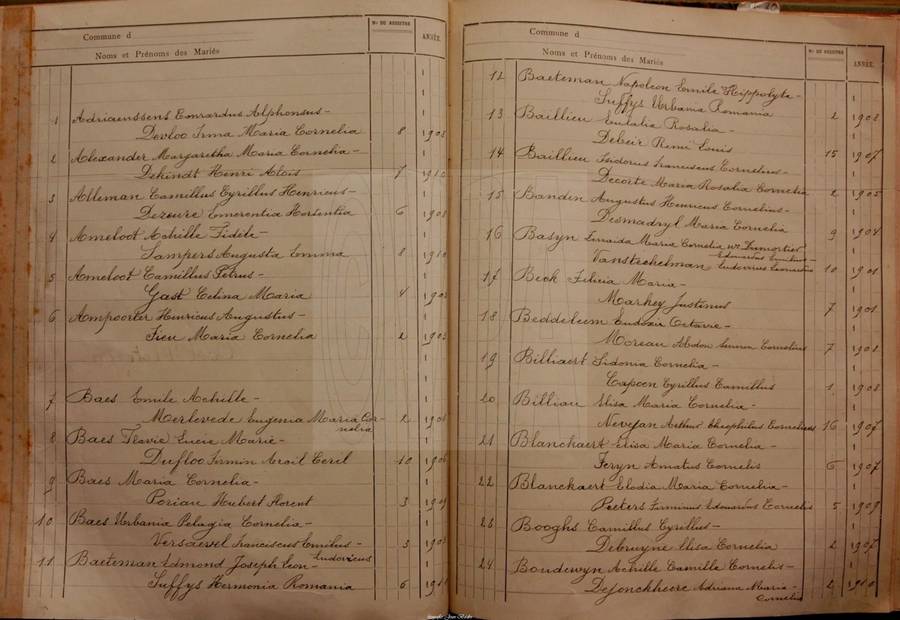 Commune d
Noms et Prénoms des Mariés
No DU REGISTRE
ANNÉE.
1 Adriaenssens Evrardus Alphonsus-
Devloo Irma Maria Cornelia 8 1908
2 Alexander Margaretha Maria Cornelia-
Dehindt Henri Alois 7 1910
3 Alleman Camillus Cyrillus Henricus-
Dezeure Emerentia Hortentia 6 1908
4 Ameloot Achille Fidele-
Sampers Augusta Emma 8 1910
5 Ameloot Camillus Petrus-
Gast Celina Maria 4
6 Ampoorter Henricus Augustus-
Fieu Maria Cornelia 2 1903
7 Baes Emile Achille-
Merlevede Eugenia Maria Cor-
nelia 2 1906
8 Baes Flavie Lucie Marie-
Dufloo Firmin Cecil 10 1906
9 Baes Maria Cornelia-
Poriau Hubert Florent 3 1909
10 Baes Urbania Pelagia Cornelia-
Versaevel Franciscus Emilius- 3
Ludovicus
11 Baeteman Edmond Joseph Leon-
Suffys Hermonia Romania 6
Commune d
Noms et Prénoms des Mariés
No DU REGISTRE
ANNÉE.
12 Baeteman Napoleon Emile Hippolyte-
Suffys Urbania Romania 2 1908
13 Baillieu Eulalia Rosalia-
Debeir Remi Louis 15 1907
14 Baillieu Isidorus Franciscus Cornelius-
Decorte Maria Rosalia Cornelia 2 1905
15 Banden Augustus Henricus Cornelius-
Desmadryl Maria Cornelia 9 1904
16 Basyn Zenaida Maria Cornelia we Dumortier
Eduardus
Vanstechelman Ludovicus 10 1901
17 Beck Felicia Maria-
Markey Justinus 7 1901
18 Beddeleem Eudoxia Octavie-
Moreau Abdon Cornelius 7 1902
19 Billiaert Sidonia Cornelia-
Capoen Cyrillus Camillus 1 1908
20 Billiau Elisa Maria Cornelia-
Nevejan Arthur Theophilus Cornelius 16 1907
21 Blanckaert Elisa Maria Cornelia-
Feryn Amatus Cornelis 6 1907
22 Blanckaert Elodia Maria Cornelia-
Peeters Firminus Edouardus Cornelis 5 1909
23 Booghs Camillus Cyrillus-
Debruyne Elisa Cornelia 2 1907
24 Boudewyn Achille Camille Cornelis-
Dejonckheere Adriana Maria-
Cornelia 2 1910